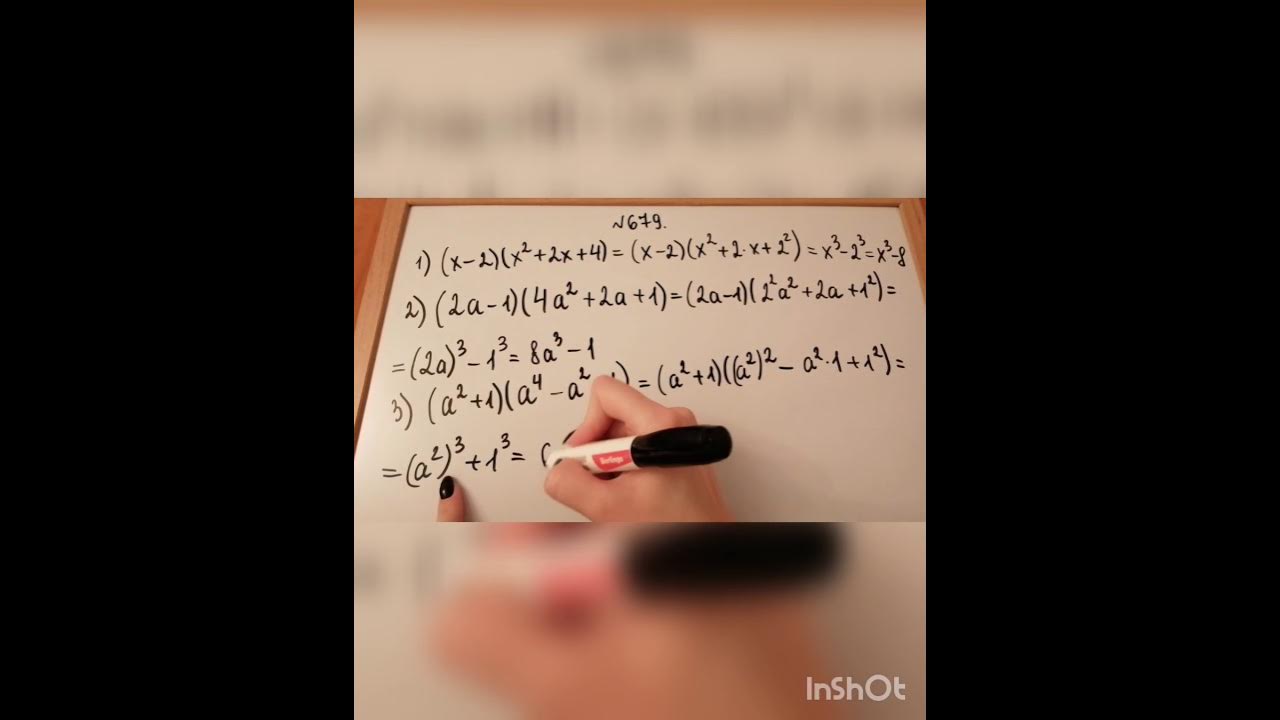 №679.
1) (x-2)(x²+2x+4)=(x-2)(x²+2·x+2²)=x³-2³=x³-8
2) (2a-1)(4a²+2a+1)=(2a-1)(2²a²+2a+1²)=
=(2a)³-1³=8a³-1
3) (a²+1)(a⁴-a² )=(a²+1)((a²)²-a²·1+1²)=
=(a²)³+1³=
Berlingo
InShOt